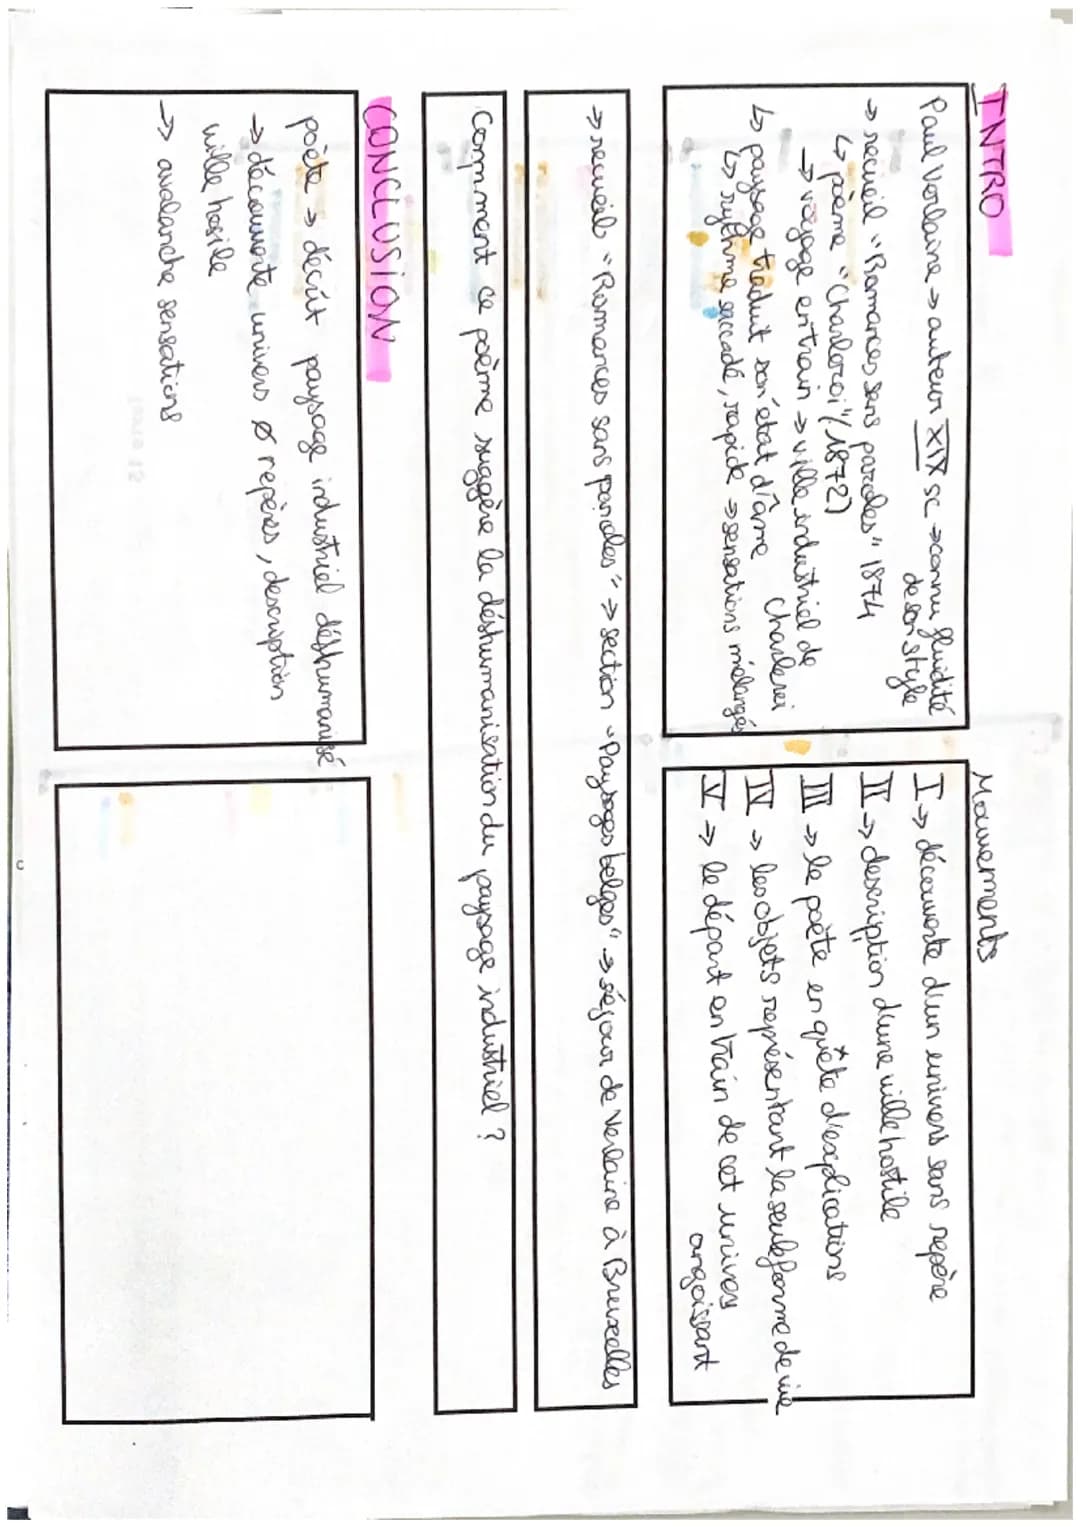 INTRO
Paul Verlaine → auteur XIX sc → connu fluidité
de son style
→ recueil "Romances sans paroles" 1874
↳ poème "Charleroi" (1872)
→ voyage en train → ville industriel de
Charleroi
↳ paysage traduit son état d'âme
↳ rythme saccadé, rapide → sensations mélangés
Mouvements
I → découverte d'un univers sans repère
II → description d'une ville hostile
III → le poète en quête d'explications
IV → les objets représentant la seule forme de vie
V → le départ en train de cet univers
angoissant
→ recueil "Romances sans paroles" → section "Paysages belges" → séjour de Verlaine à Bruxelles
Comment ce poème suggère la déshumanisation du paysage industriel ?
CONCLUSION
poète → décrit paysage industriel déshumanisé
→ découverte univers ø repères, description
ville hosile
→ avalanche sensations